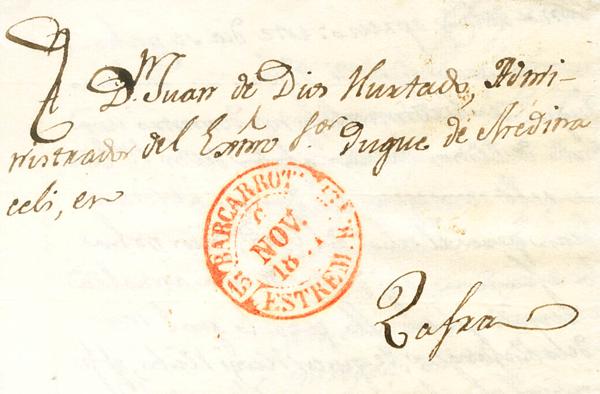 Dn. Juan de Dios Hurtado, Admi-
nistrador del Exmo. Sor. Duque de Medina
celi, en
BARCARROT
NOV.
18
ESTREM.
Zafra